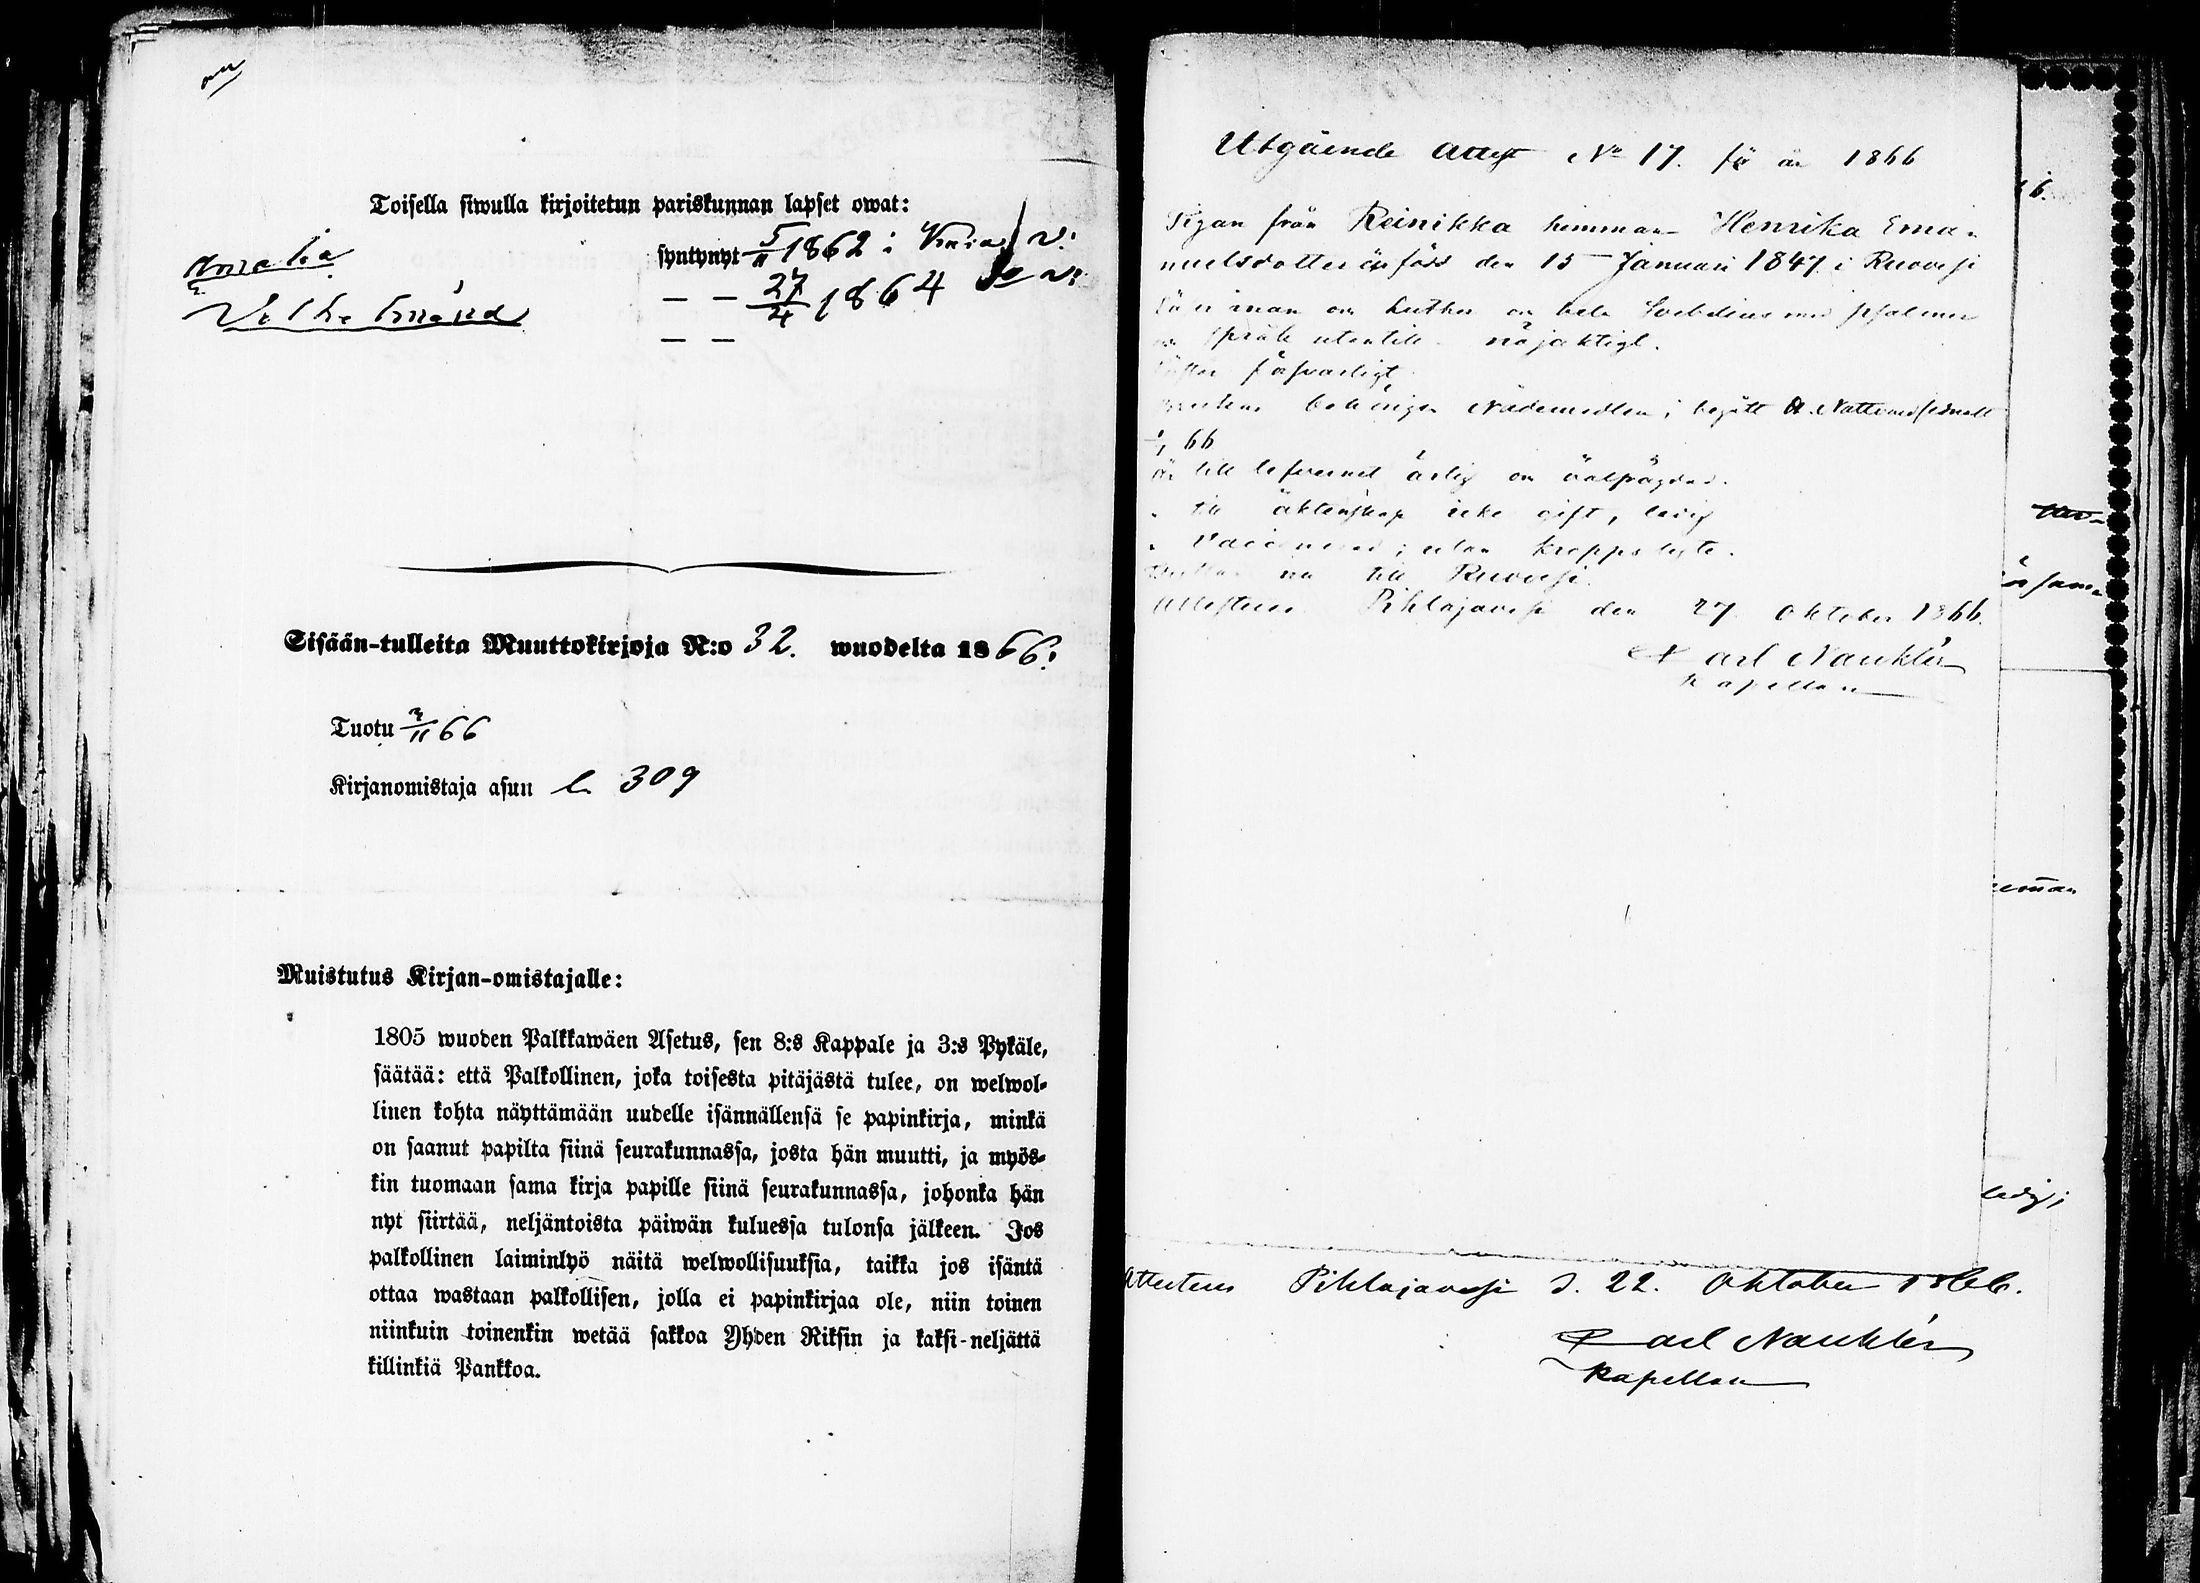 Toisella siwulla kirjoitetun pariskunnan lapset owat:
Amalia syntynyt 5/11 1862 i
Vilhelmina — — 27/4 1864
— —
Sisään-tulleita Muuttokirjoja N:o 32. wuodelta 1866.
Tuotu 3/11 66
Kirjanomistaja asuu 309
Muistutus Kirjan-omistajalle:
1805 wuoden Palkkawäen Asetus, sen 8:s Kappale ja 3:s Pykäle,
säätää: että Palkollinen, joka toisesta pitäjästä tulee, on welwol-
linen kohta näyttämään uudelle isännällensä se papinkirja, minkä
on saanut papilta siinä seurakunnassa, josta hän muutti, ja myös-
kin tuomaan sama kirja papille siinä seurakunnassa, johonka hän
nyt siirtää, neljäntoista päiwän kuluessa tulonsa jälkeen. Jos
palkollinen laiminlyö näitä welwollisuuksia, taikka jos isäntä
ottaa wastaan palkollisen, jolla ei papinkirjaa ole, niin toinen
niinkuin toinenkin wetää sakkoa Yhden Riksin ja kaksi-neljättä
killinkiä Pankkoa.
Utgående Attest No 17. för år 1866
Pigan från Reinikka hemman Henrika Ema-
nuelsdotter är född den 15 Januari 1847 i Ruovesi
Läser innan och Luther och hela Svebelius med psalmer
och språk utantill nöjaktigt.
försvarligt
behörigen Nådemedlen; begått H. Nattvard
66
är till lefvernet ärlig och
" till äktenskap icke gift, ledig
" vaccinerad; utan kroppslyte.
nu till Ruovesi.
Attesteras Pihlajavesi den 27 Oktober 1866.
Carl Nauklér
Kapellan
ledig;
Attesteras Pihlajavesi d. 22. Oktober 1866.
Carl Nauklér
Kapellan